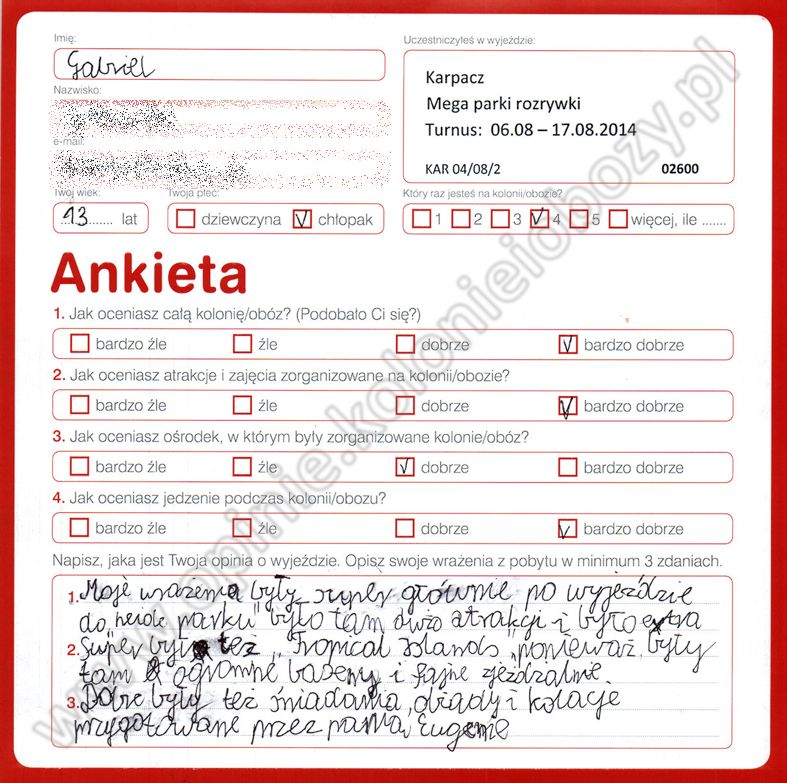 Imię:
Gabriel
Uczestniczyłeś w wyjeździe:
Karpacz
Mega parki rozrywki
Turnus: 06.08 – 17.08.2014
KAR 04/08/2 02600
Nazwisko:
e-mail:
Twój wiek:
13 lat
Twoja płeć:
dziewczyna chłopak
Który raz jesteś na kolonii/obozie?
1 2 3 4 5 więcej, ile .......
Ankieta
1. Jak oceniasz całą kolonię/obóz? (Podobało Ci się?)
bardzo źle źle dobrze bardzo dobrze
2. Jak oceniasz atrakcje i zajęcia zorganizowane na kolonii/obozie?
bardzo źle źle dobrze bardzo dobrze
3. Jak oceniasz ośrodek, w którym były zorganizowane kolonie/obóz?
bardzo źle źle dobrze bardzo dobrze
4. Jak oceniasz jedzenie podczas kolonii/obozu?
bardzo źle źle dobrze bardzo dobrze
Napisz, jaka jest Twoja opinia o wyjeździe. Opisz swoje wrażenia z pobytu w minimum 3 zdaniach.
1. Moje wrażenia były super głównie po wyjeździe
do parku" było tam dużo atrakcji i było extra
2. Super był też „Tropical Islands", ponieważ były
tam ogromne baseny i fajne zjeżdżalnie.
3. Dobre były też śniadania, obiady i kolacje
przygotowane przez pana Eugenie
www.opinie.kolonieiobozy.pl